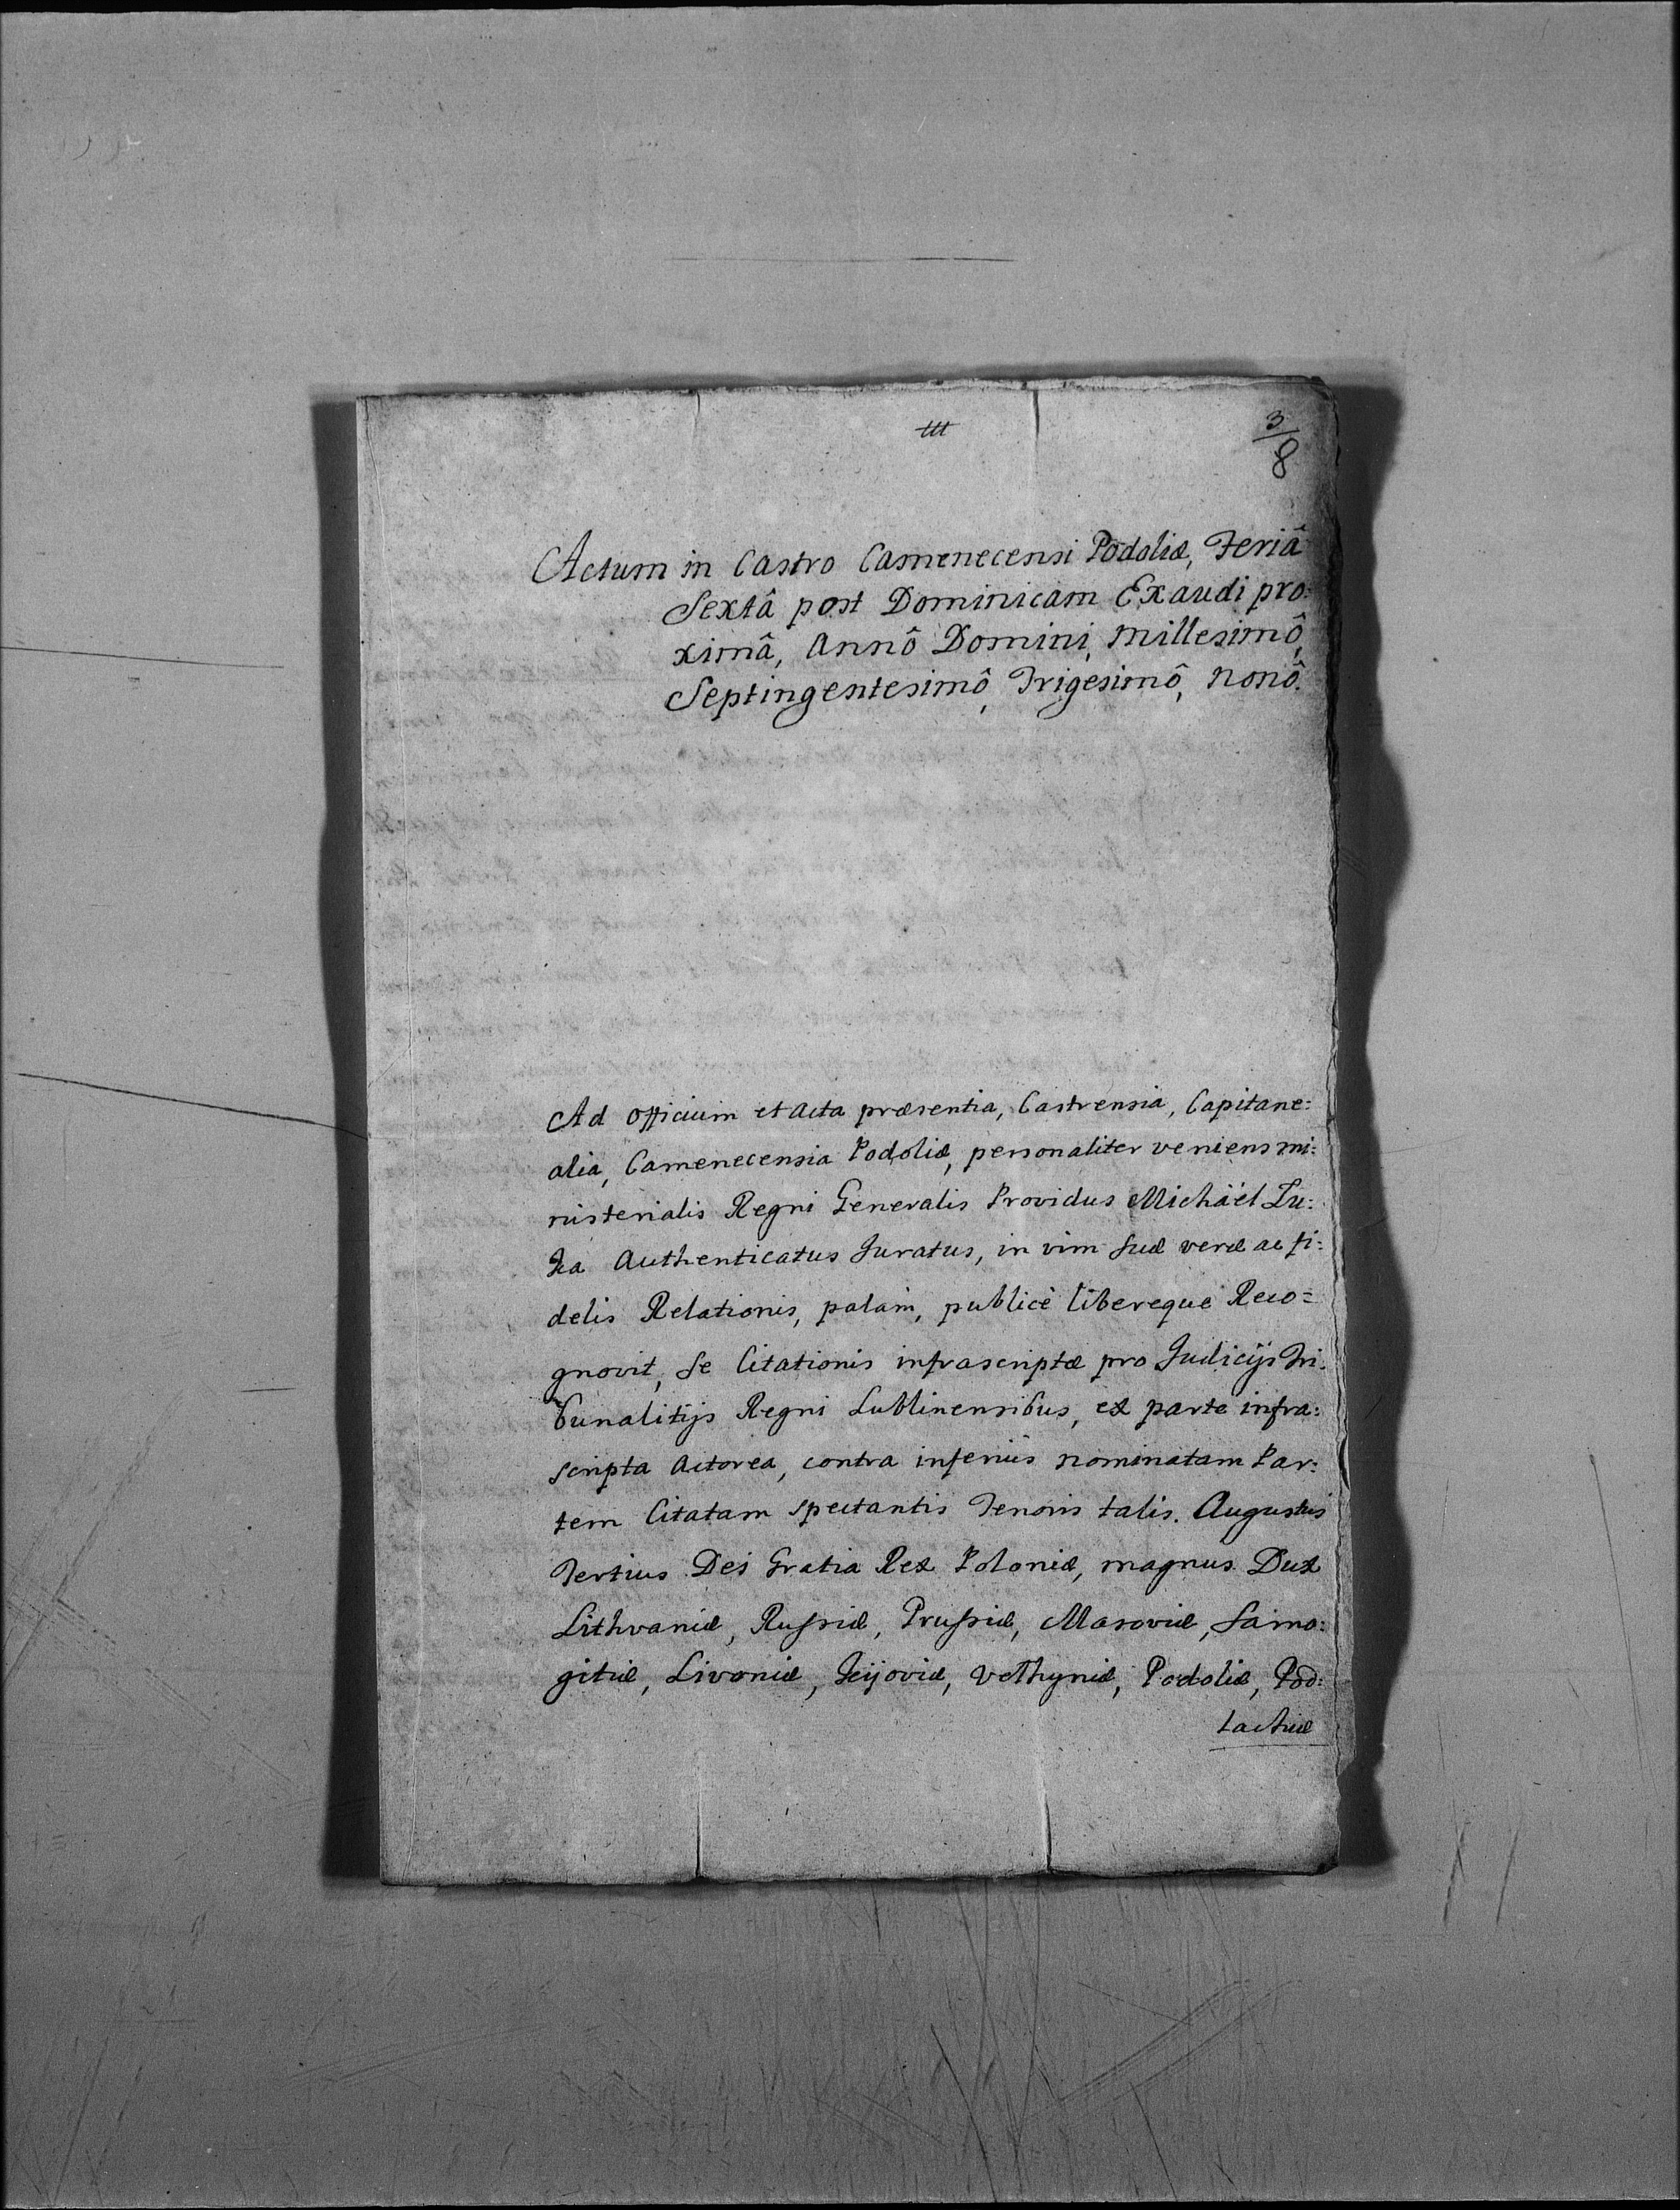 3/8
Actum in Castro Camenecensi Podoliæ, Feriâ
Sextâ post Dominicam Exaudi pro:
ximâ, Annô Domini, Millesimô,
Septingentesimô, Trigesimô, Nonô.
Ad Officium et Acta præsentia, Castrensia, Capitane:
alia, Camenecensia Podoliæ, personaliter veniens mi:
nisterialis Regni Generalis Providus Michaël
Authenticatus Juratus, in vim suæ veræ ac fi:
delis Relationis, palam, publicè liberequè Reco=
gnovit, se Citationis infrascriptæ pro Judicijs Tri:
bunalitijs Regni Lublinensibus, ex parte infra:
scripta Actorea, contra inferiùs nominatam Par:
tem Citatam spectantis Tenoris talis. Augustus
Tertius Dei Gratia Rex Poloniæ, magnus Dux
Lithvaniæ, Russiæ, Prussiæ, Masoviæ, Samo:
gitiæ, Livoniæ, Kijoviæ, Volhyniæ, Podoliæ, Pod:
lachiæ